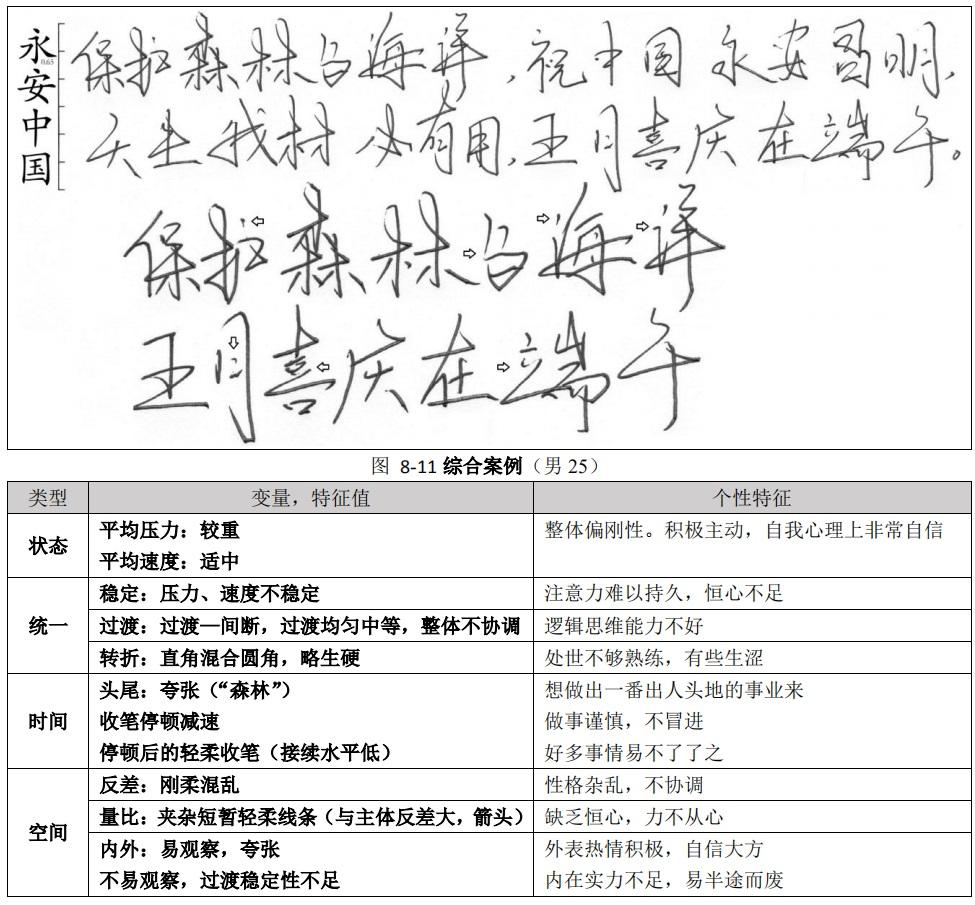 永安中国
0.65
保护森林与海洋，祝中国永安图明，
天生我材必有用，五月喜庆在端午。
保护森林与海洋
五月喜庆在端午
图 8-11 综合案例（男 25）
类型 变量，特征值 个性特征
状态 平均压力：较重 整体偏刚性。积极主动，自我心理上非常自信
平均速度：适中
统一 稳定：压力、速度不稳定 注意力难以持久，恒心不足
过渡：过渡—间断，过渡均匀中等，整体不协调 逻辑思维能力不好
转折：直角混合圆角，略生硬 处世不够熟练，有些生涩
时间 头尾：夸张（“森林”） 想做出一番出人头地的事业来
收笔停顿减速 做事谨慎，不冒进
停顿后的轻柔收笔（接续水平低） 好多事情易不了了之
空间 反差：刚柔混乱 性格杂乱，不协调
量比：夹杂短暂轻柔线条（与主体反差大，箭头） 缺乏恒心，力不从心
内外：易观察，夸张 外表热情积极，自信大方
不易观察，过渡稳定性不足 内在实力不足，易半途而废